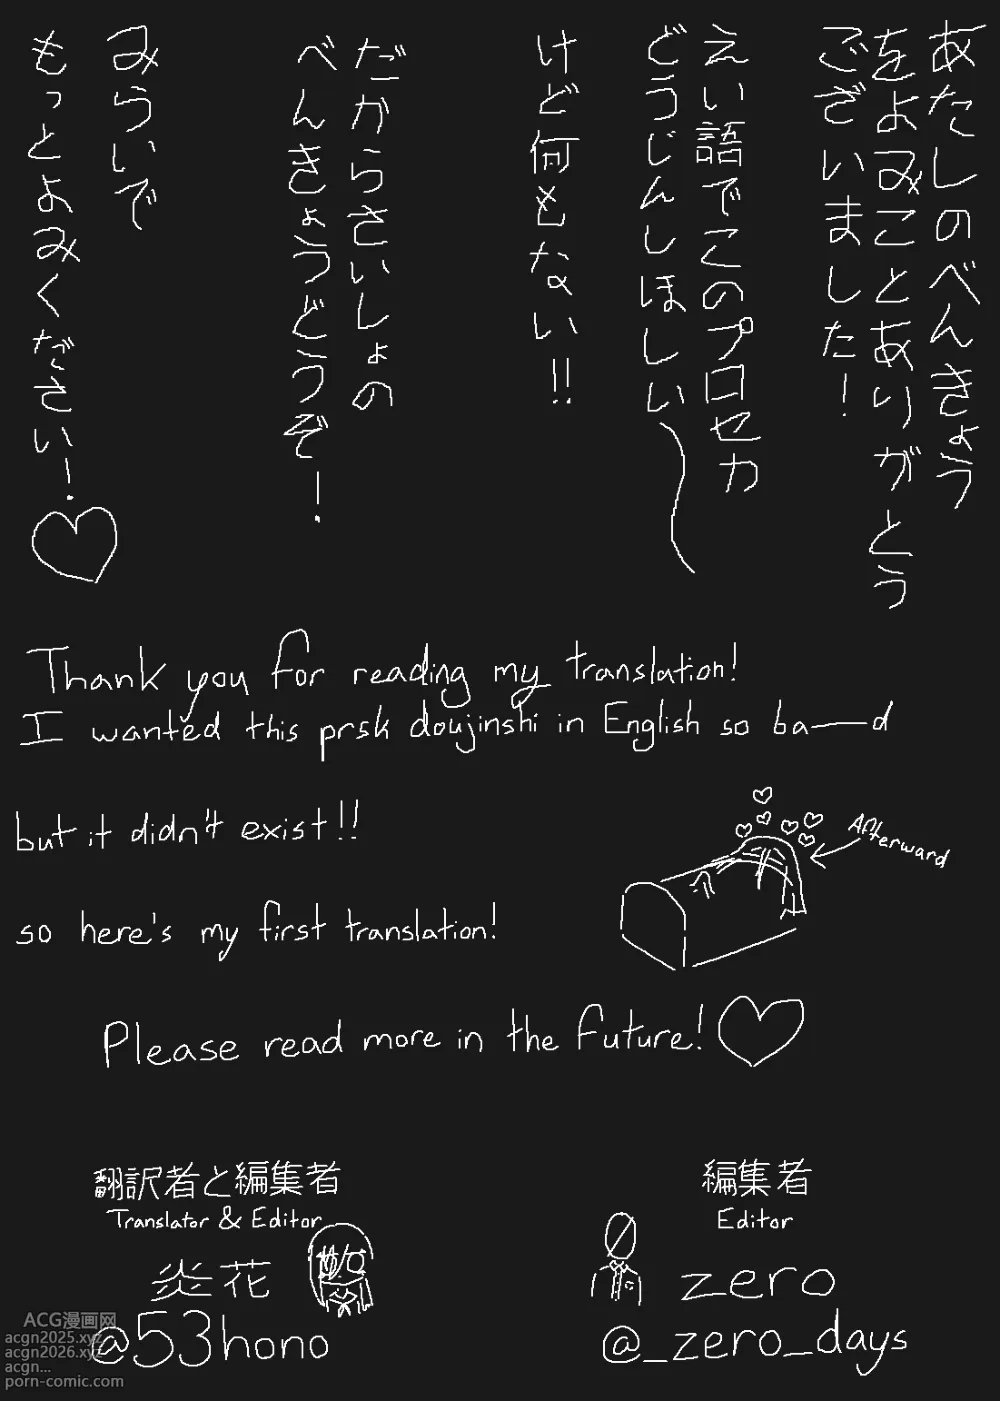 あたしのべんきょう
をよみことありがとう
ございました!
えい語でこのプロセカ
どうじんしほしい〜
けど何もない!!
だからさいしょの
べんきょうどうぞ!
みらいで
もっとよみください!♡
Thank you for reading my translation!
I wanted this prsk doujinshi in English so ba—d
but it didn't exist!!
Afterward
so here's my first translation!
Please read more in the future!♡
翻訳者と編集者
Translator & Editor
炎花
@53hono
編集者
Editor
zero
@_zero_days
ACG漫画网
acgn2025.xyz
acgn2026.xyz
acgn...
porn-comic.com